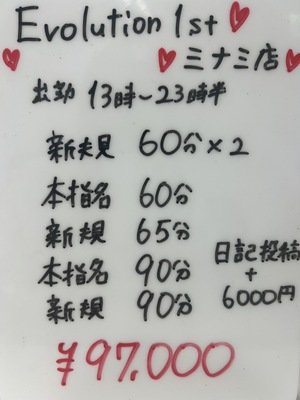 Evolution 1st
ミナミ店
出勤 13時〜23時半
新規 60分×2
本指名 60分
新規 65分
本指名 90分
新規 90分
日記投稿
+
6000円
¥97.000